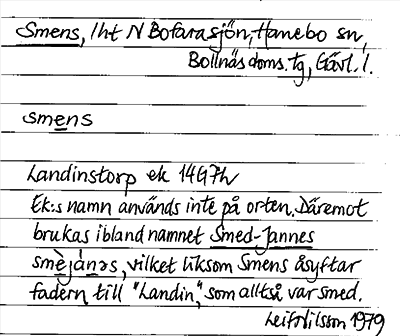 Smens, lht N Bofarasjön, Hanebo sn,
Bollnäs doms. tg, Gävl. l.
smens
Landinstorp ek 14G7h
Ek:s namn används inte på orten. Däremot
brukas ibland namnet Smed-Jannes
smèjánəs, vilket liksom Smens åsyftar
fadern till "Landin", som alltså var smed.
Leif Nilsson 1979